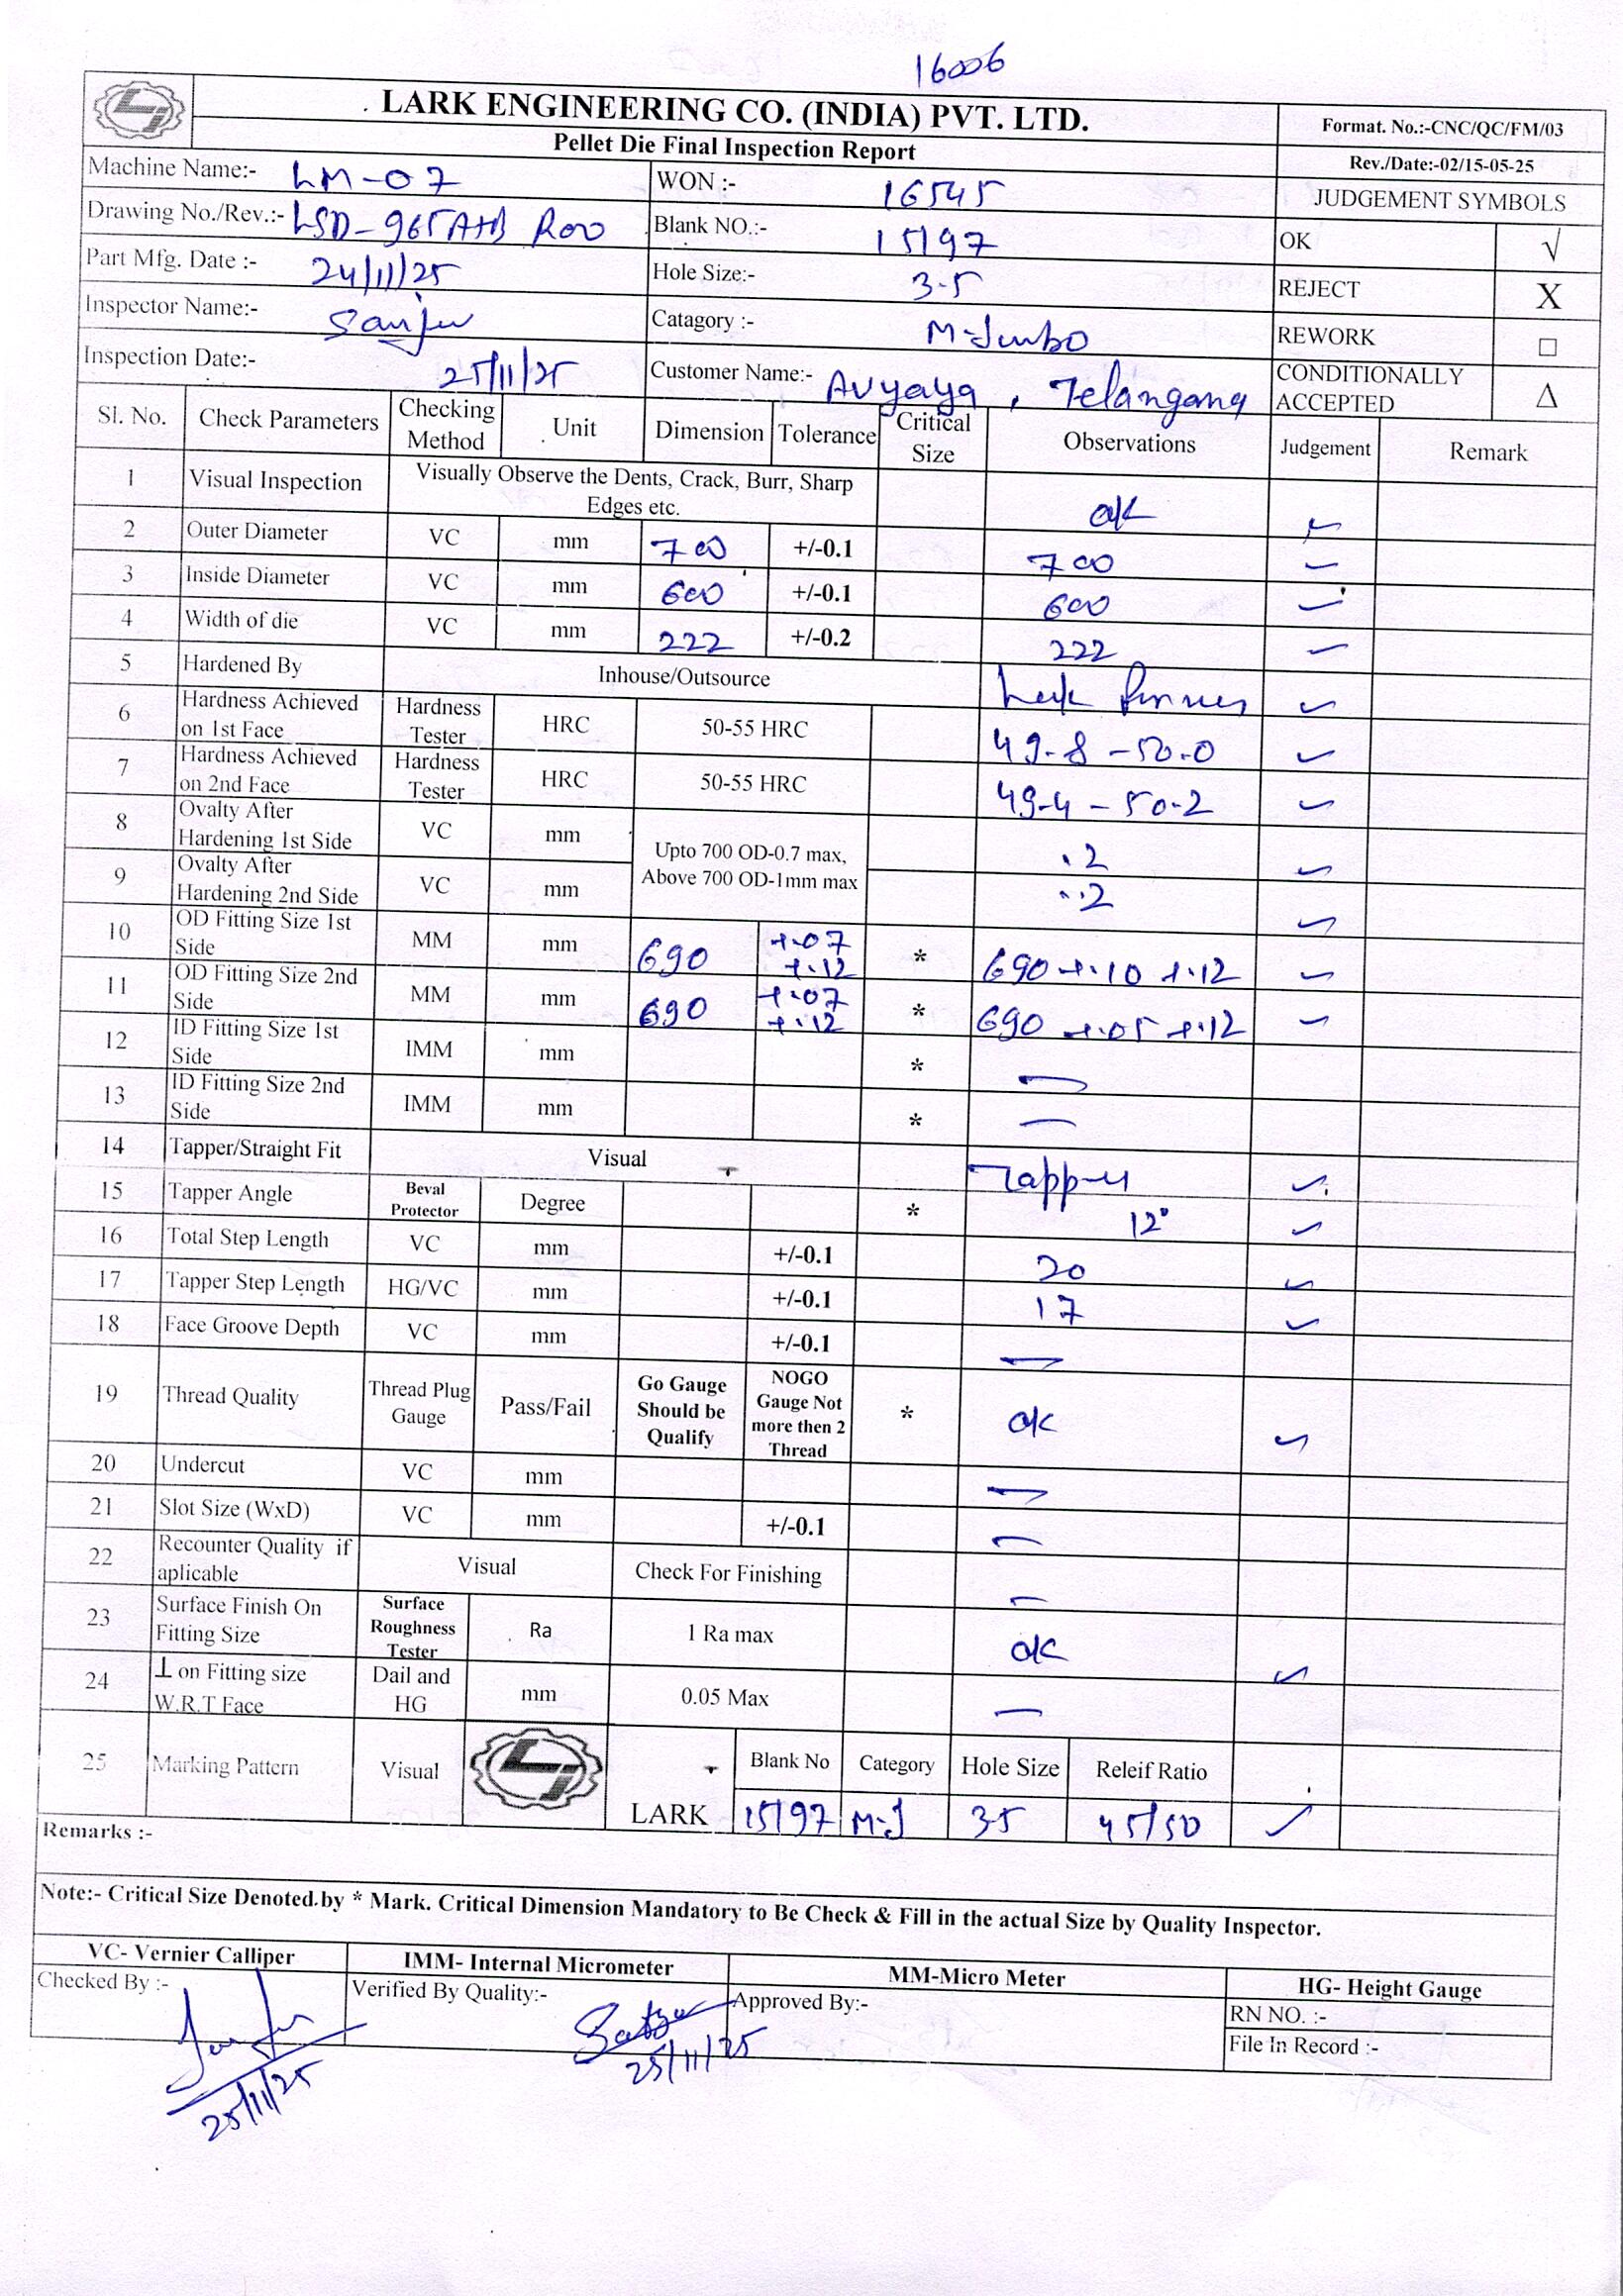 16006
LARK ENGINEERING CO. (INDIA) PVT. LTD.
Pellet Die Final Inspection Report
Format. No.:-CNC/QC/FM/03
Rev./Date:-02/15-05-25
Machine Name:- LM-07 WON :- 16545 JUDGEMENT SYMBOLS
Drawing No./Rev.:- LSD-965AHB R00 Blank NO.:- 15197 OK √
Part Mfg. Date :- 24/11/25 Hole Size:- 3.5 REJECT X
Inspector Name:- Sanju Catagory :- M-Jumbo REWORK □
Inspection Date:- 25/11/25 Customer Name:- Avyaya, Telangana CONDITIONALLY ACCEPTED Δ
Sl. No. Check Parameters Checking Method Unit Dimension Tolerance Critical Size Observations Judgement Remark
1 Visual Inspection Visually Observe the Dents, Crack, Burr, Sharp Edges etc. ok ✓
2 Outer Diameter VC mm 700 +/-0.1 700 ✓
3 Inside Diameter VC mm 600 +/-0.1 600 ✓
4 Width of die VC mm 222 +/-0.2 222 ✓
5 Hardened By Inhouse/Outsource ✓
6 Hardness Achieved on 1st Face Hardness Tester HRC 50-55 HRC 49.8 - 50.0 ✓
7 Hardness Achieved on 2nd Face Hardness Tester HRC 50-55 HRC 49.4 - 50.2 ✓
8 Ovalty After Hardening 1st Side VC mm Upto 700 OD-0.7 max, Above 700 OD-1mm max .2 ✓
9 Ovalty After Hardening 2nd Side VC mm .2 ✓
10 OD Fitting Size 1st Side MM mm 690 +.07 +.12 * 690 +.10 +.12 ✓
11 OD Fitting Size 2nd Side MM mm 690 +.07 +.12 * 690 +.05 +.12 ✓
12 ID Fitting Size 1st Side IMM mm * —
13 ID Fitting Size 2nd Side IMM mm * —
14 Tapper/Straight Fit Visual Tapper ✓
15 Tapper Angle Beval Protector Degree * 12° ✓
16 Total Step Length VC mm +/-0.1 20 ✓
17 Tapper Step Length HG/VC mm +/-0.1 17 ✓
18 Face Groove Depth VC mm +/-0.1 —
19 Thread Quality Thread Plug Gauge Pass/Fail Go Gauge Should be Qualify NOGO Gauge Not more then 2 Thread * ok ✓
20 Undercut VC mm —
21 Slot Size (WxD) VC mm +/-0.1 —
22 Recounter Quality if aplicable Visual Check For Finishing —
23 Surface Finish On Fitting Size Surface Roughness Tester Ra 1 Ra max ok ✓
24 ⊥ on Fitting size W.R.T Face Dail and HG mm 0.05 Max —
25 Marking Pattern Visual LARK Blank No Category Hole Size Releif Ratio
15197 M-J 3.5 45/50 ✓
Remarks :-
Note:- Critical Size Denoted by * Mark. Critical Dimension Mandatory to Be Check & Fill in the actual Size by Quality Inspector.
VC- Vernier Calliper IMM- Internal Micrometer MM-Micro Meter HG- Height Gauge
Checked By :- Verified By Quality:- Approved By:- RN NO. :-
File In Record :-
25/11/25 25/11/25